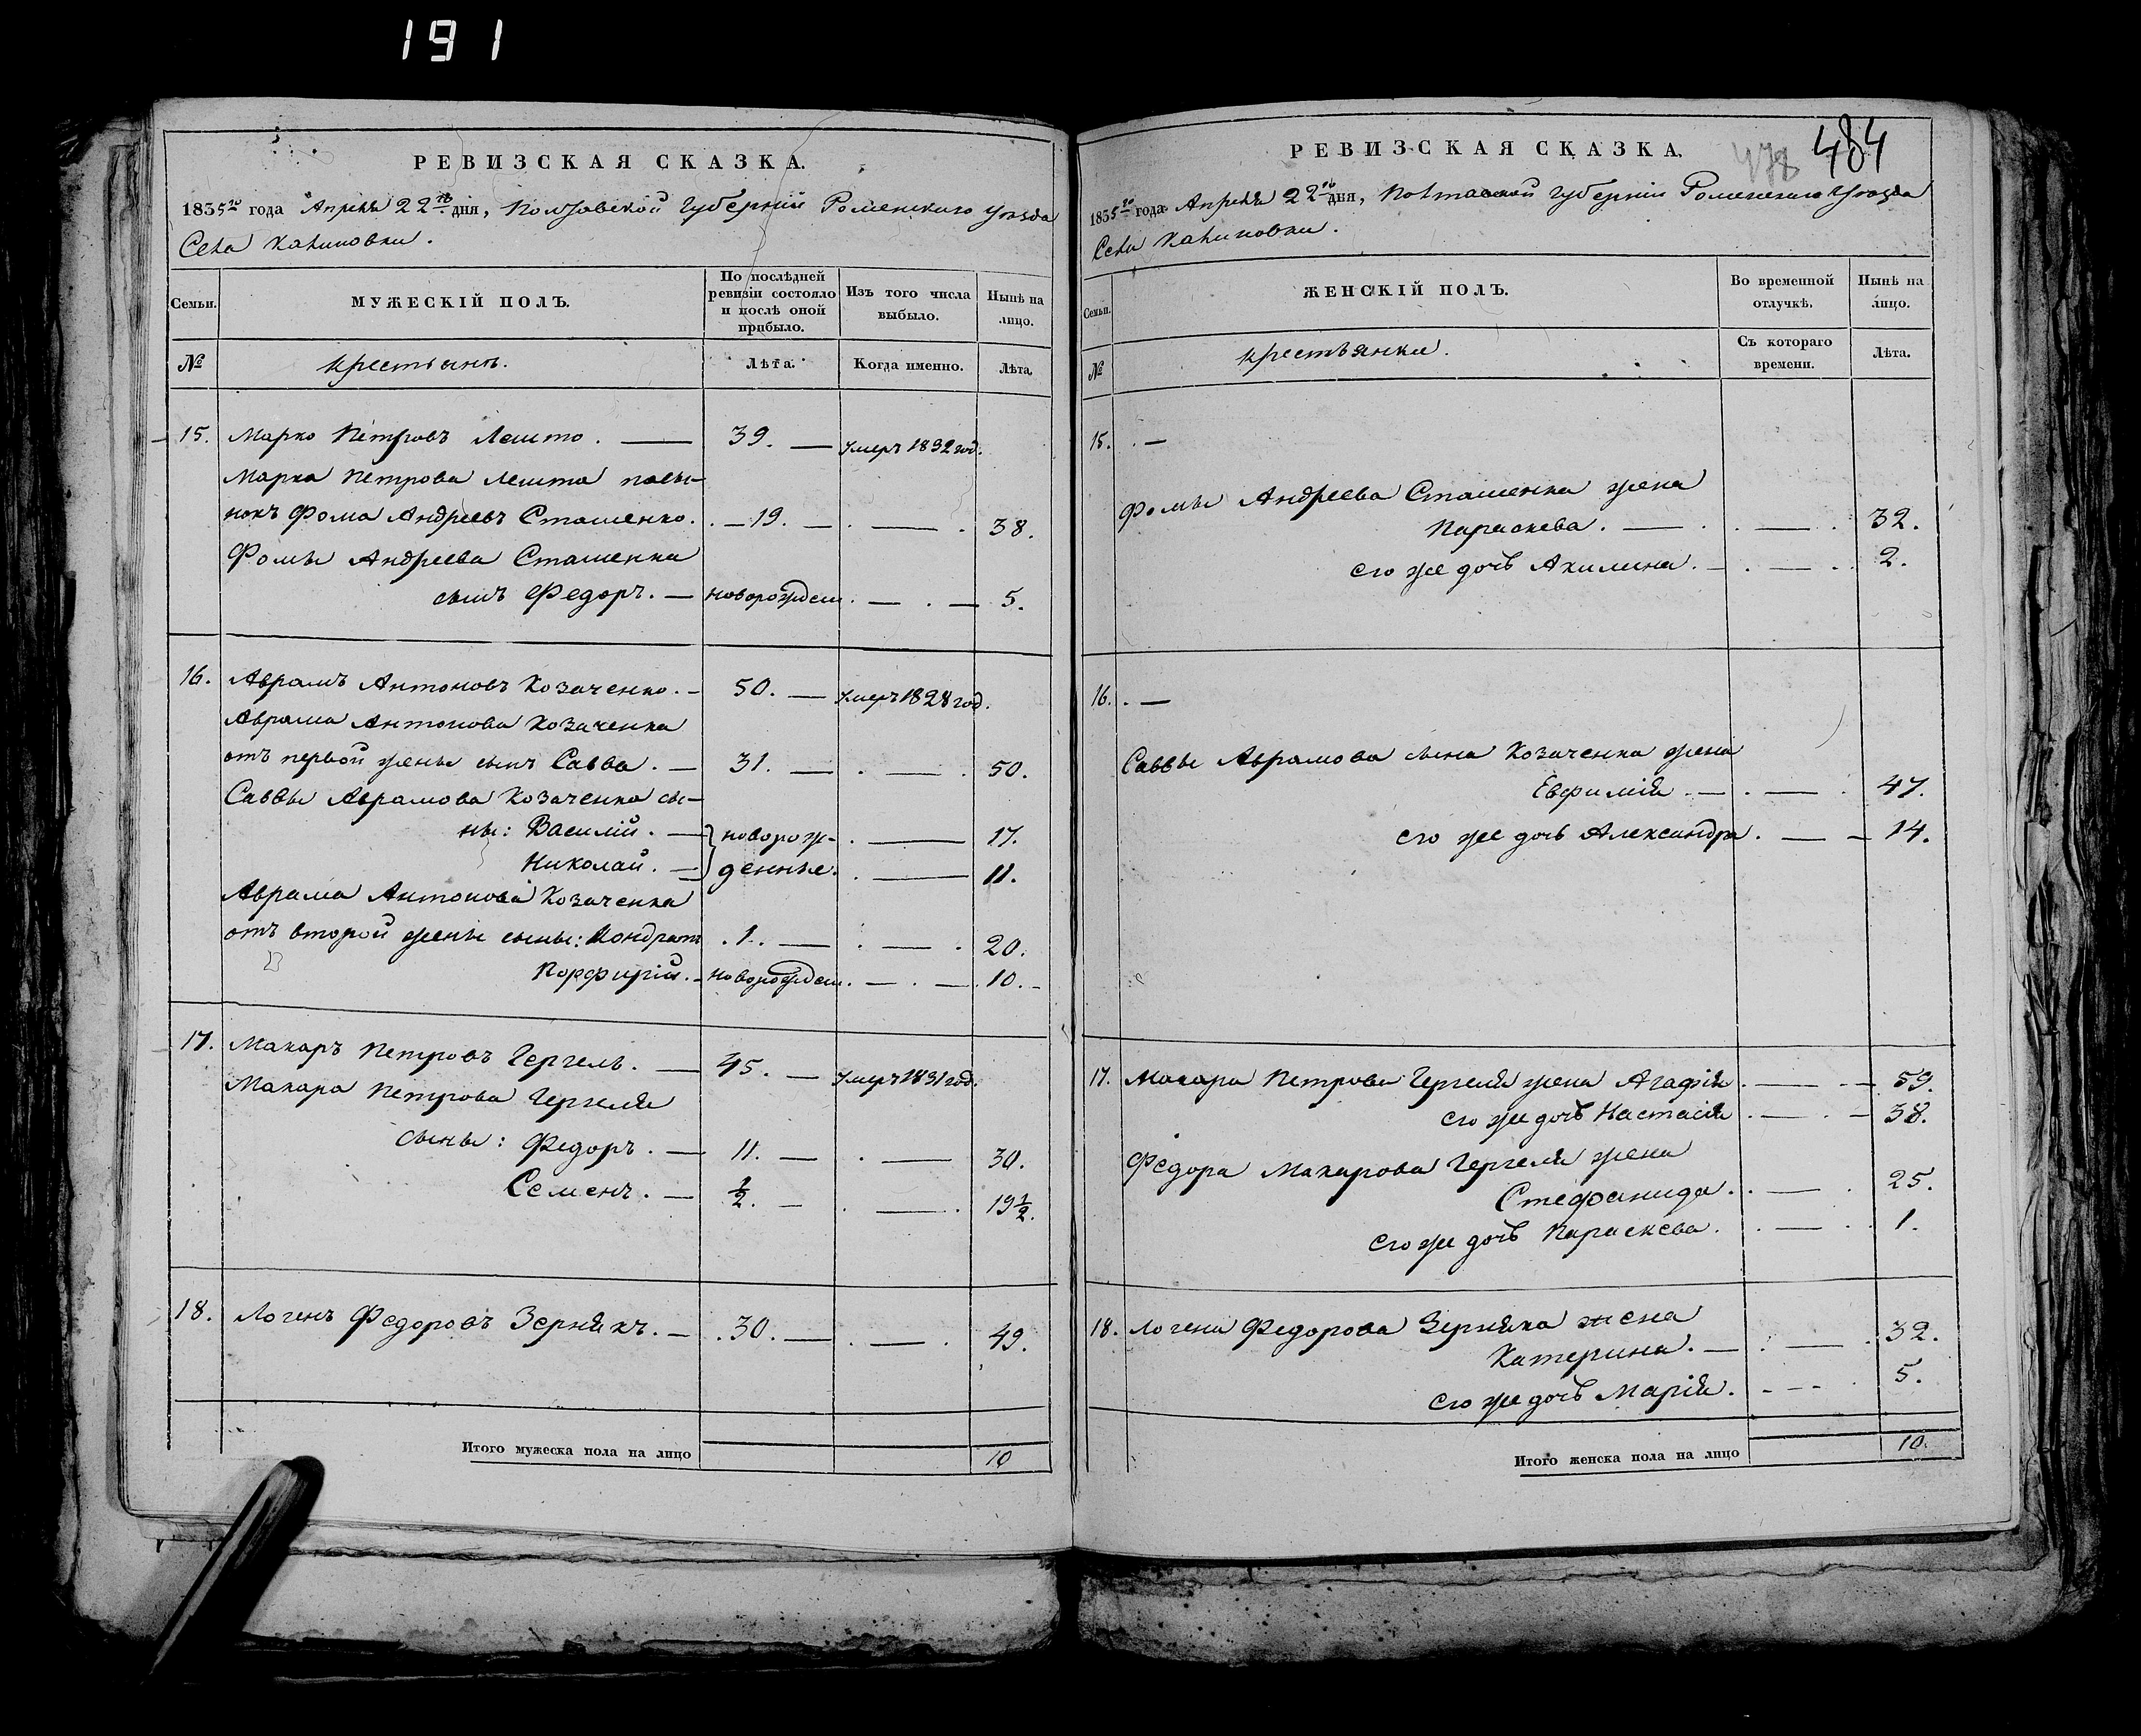 191
РЕВИЗСКАЯ СКАЗКА.
1835го года Апреля 22го дня, Полтавской Губерніи Роменского Уезда
Села Калиновки.
Семьи.
МУЖЕСКІЙ ПОЛЪ.
По послѣдней ревизіи состояло и послѣ оной прибыло.
Изъ того числа выбыло.
Нынѣ на лицо.
№
крестьяне.
Лѣта.
Когда именно.
Лѣта.
15. Марко Петровъ Лешто. — 39. — умеръ 1832 год.
Марка Петрова Лешта пасы-
нокъ Фома Андреевъ Сташенко. — 19. — . — . 38.
Фомы Андреева Сташенка
сынъ Федоръ. — новорожден. — . — 5.
16. Аврамъ Антоновъ Козаченко. — 50. — умеръ 1828 год.
Аврама Антонова Козаченка
отъ первой жены сынъ Савва. — 31. — . — . 50.
Саввы Аврамова Козаченка сы-
ны: Василій. — } новорож- . — 17.
Николай. — } денные. . — 11.
Аврама Антонова Козаченка
отъ второй жены сыны: Кондратъ . 1. — . — . 20.
Порфирій. — новорожден. — . — 10. -
17. Макаръ Петровъ Гергель. — 45. — умеръ 1831 год.
Макара Петрова Гергеля
сыны: Федоръ. — 11. — . — 30.
Семенъ. — ½. — . — . 19½.
18. Логенъ Федоровъ Зернякъ. — . 30. — . — . 49.
Итого мужеска пола на лицо 10
484
478
РЕВИЗСКАЯ СКАЗКА.
1835го года Апреля 22го дня, Полтавской Губерніи Роменского Уезда
Села Калиновки.
Семьи.
ЖЕНСКІЙ ПОЛЪ.
Во временной отлучкѣ.
Нынѣ на лицо.
№
крестьянки.
Съ котораго времени.
Лѣта.
15. . —
Фомы Андреева Сташенка жена
Параскева. — . . — . 32.
его же дочь Акилина. — . — . . 2.
16. . —
Саввы Аврамова сына Козаченка жена
Евфимія. — . — . 47.
его же дочь Александра. — — 14.
17. Макара Петрова Гергеля жена Агафія. — . — 59.
его же дочь Настасія . — . — 38.
Федора Макарова Гергеля жена
Стефанида. . — . 25.
его же дочь Параскева. . — . . 1.
18. Логена Федорова Зерняка жена
Катерина. — . — . 32.
его же дочь Марія. - - - . 5.
Итого женска пола на лицо 10.